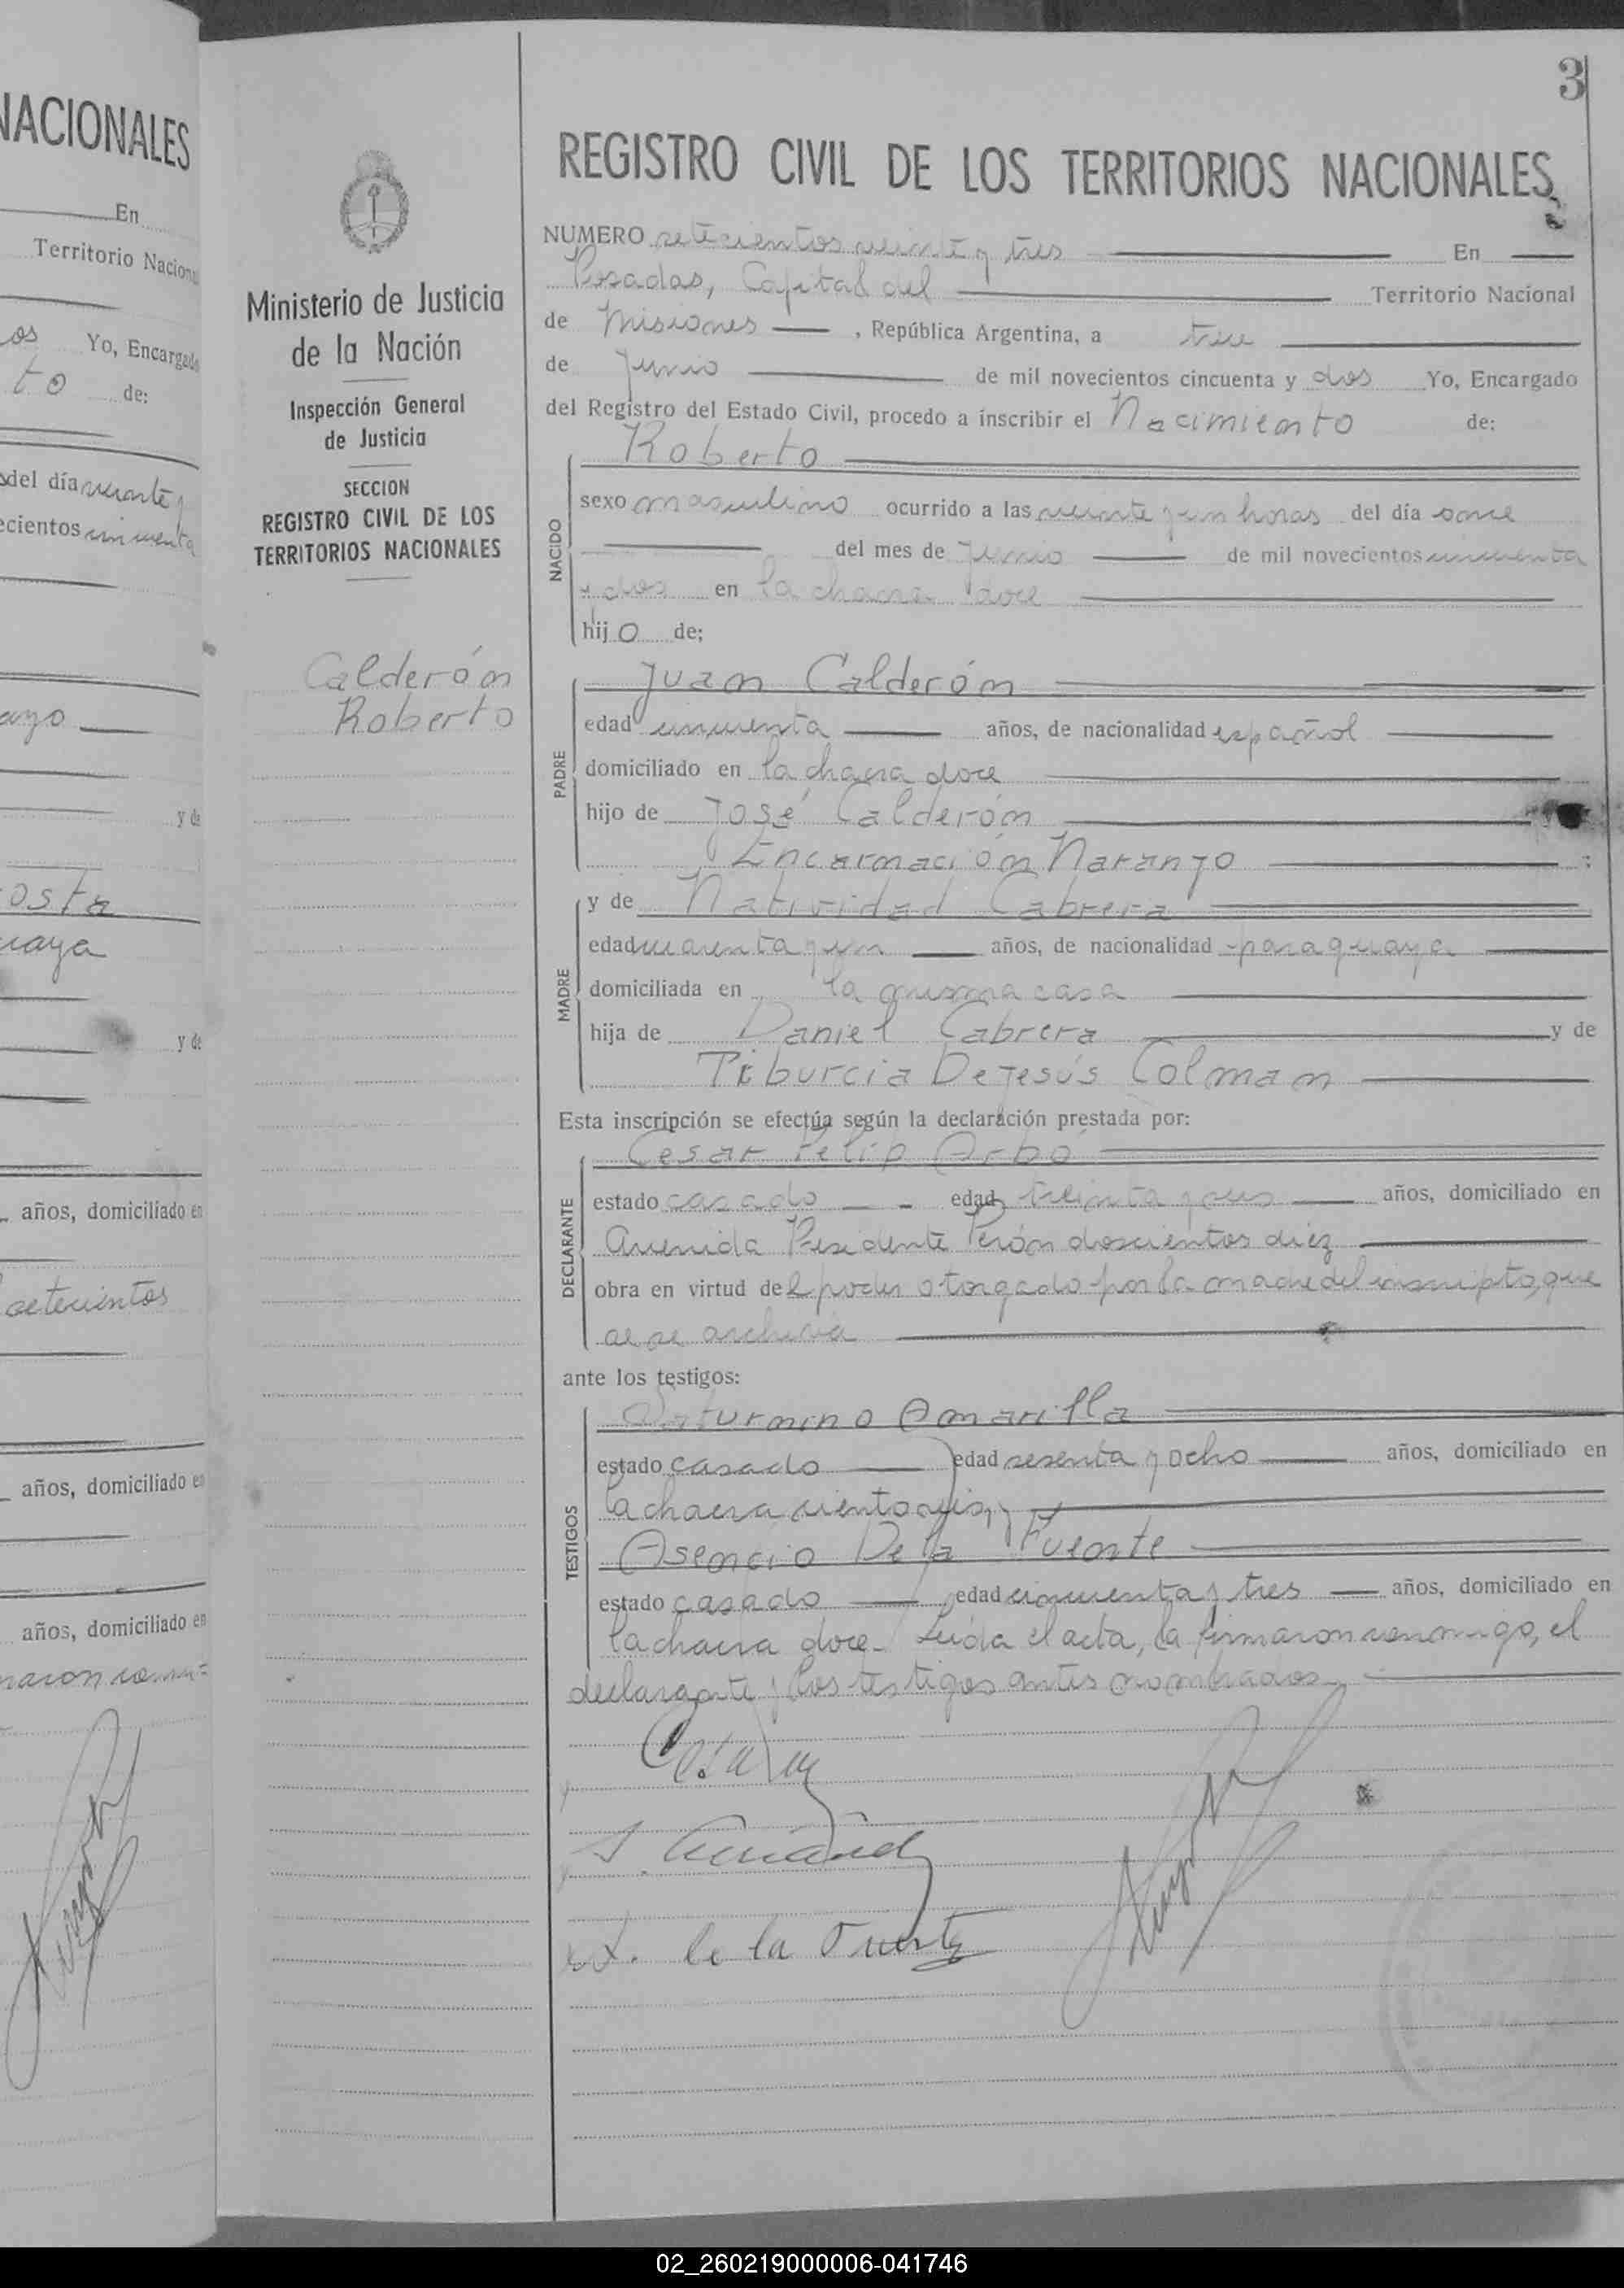 NACIONALES
En
Territorio Nacional
os Yo, Encargado
to de:
del día veinte y
ecientos cincuenta
ayo
y de
osta
uaya
y de
años, domiciliado en
setecientos
años, domiciliado en
años, domiciliado en
maron conmi=
Ministerio de Justicia
de la Nación
Inspección General
de Justicia
SECCION
REGISTRO CIVIL DE LOS
TERRITORIOS NACIONALES
Calderón
Roberto
3
REGISTRO CIVIL DE LOS TERRITORIOS NACIONALES
NUMERO setecientos veinte y tres En
Posadas, Capital del Territorio Nacional
de Misiones , República Argentina, a trece
de Junio de mil novecientos cincuenta y dos Yo, Encargado
del Registro del Estado Civil, procedo a inscribir el Nacimiento de:
Roberto
NACIDO
sexo masculino ocurrido a las veinte y un horas del día once
del mes de Junio de mil novecientos cincuenta
y dos en la chacra doce
hijo de;
Juan Calderón
PADRE
edad cincuenta años, de nacionalidad español
domiciliado en la chacra doce
hijo de José Calderón
Encarnación Naranjo ;
MADRE
y de Natividad Cabrera
edad cuarenta y un años, de nacionalidad paraguaya
domiciliada en la misma casa
hija de Daniel Cabrera y de
Tiburcia Dejesús Colman
Esta inscripción se efectúa según la declaración prestada por:
Cesar Felip Arbó
DECLARANTE
estado casado edad treinta y seis años, domiciliado en
Avenida Presidente Perón doscientos diez
obra en virtud del poder otorgado por la madre del inscripto, que
se se archiva
ante los testigos:
Saturnino Amarilla
TESTIGOS
estado casado edad sesenta y ocho años, domiciliado en
la chacra ciento seis, y
Asencio De la Fuente
estado casado edad cincuenta y tres años, domiciliado en
la chacra doce. Leída el acta, la firmaron conmigo, el
declarante y los testigos antes nombrados.
A. de la Fuente
02_260219000006-041746